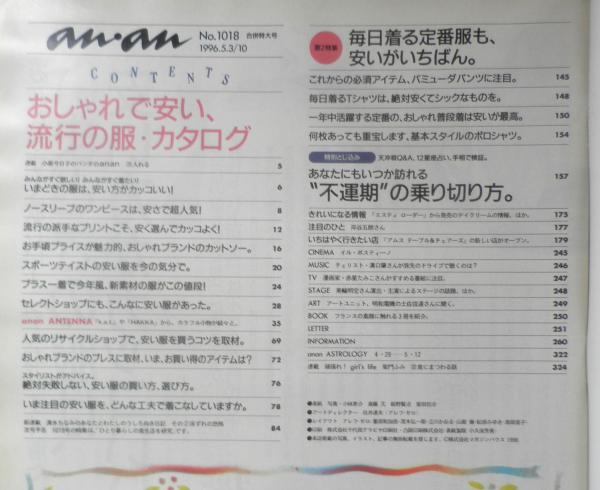 an・an
No.1018 合併特大号
1996.5.3/10
CONTENTS
おしゃれで安い、
流行の服・カタログ
連載 小泉今日子のパンダのanan 5
みんながすぐ欲しい! みんながすぐ着たい!
いまどきの服は、安い方がカッコいい! 6
ノースリーブのワンピースは、安さで超人気! 8
流行の派手なプリントこそ、安く選んでカッコよく! 12
お手頃プライスが魅力的、おしゃれブランドのカットソー。 16
スポーツテイストの安い服を今の気分で。 20
プラス一着で今年風、新素材の服がこの値段! 24
セレクトショップにも、こんなに安い服があった。 28
anan ANTENNA 「k.a.t.」や「HAKKA」から、カラフル小物が続々と。 35
人気のリサイクルショップで、安い服を買うコツを取材。 69
おしゃれブランドのプレスに取材、いま、お買い得のアイテムは? 72
スタイリストがアドバイス。
絶対失敗しない、安い服の買い方、選び方。 76
いま注目の安い服を、どんな工夫で着こなしていますか。 78
84
第2特集
毎日着る定番服も、
安いがいちばん。
これからの必須アイテム、バミューダパンツに注目。 145
毎日着るTシャツは、絶対安くてシックなものを。 148
一年中活躍する定番の、おしゃれ普段着は安いが最高。 150
何枚あっても重宝します、基本スタイルのポロシャツ。 154
特別とじ込み 天冲殺Q&A、12星座占い、手相で検証。
あなたにもいつか訪れる 157
“不運期”の乗り切り方。
きれいになる情報 「エスティ ローダー」から発売のデイクリームの情報、ほか。 175
注目のひと 岸谷五朗さん 177
いちはやく行きたい店 「アムス テーブル&チェアーズ」の新しい店がオープン。 179
CINEMA イル・ポスティーノ 245
MUSIC チェリスト・溝口肇さんが旅先のドライブで聴くのは? 246
TV 漫画家・赤星たみこさんがすすめる番組に注目。 247
STAGE 美輪明宏さん演出・主演によるステージの話題、ほか。 248
ART アートユニット、明和電機の土佐信道さんに聞く。 249
BOOK フランスの素顔に触れる3冊を紹介。 250
LETTER 251
INFORMATION 260
anan ASTROLOGY 4・29——5・12 322
連載 頑張れ! girl's life 柴門ふみ 恋愛にまつわる話 324